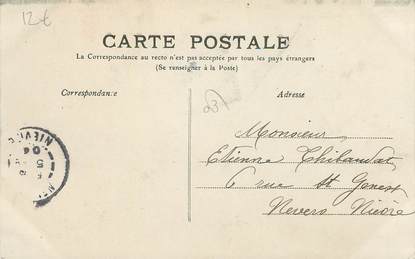 12€
CARTE POSTALE
La Correspondance au recto n'est pas acceptée par tous les pays étrangers
(Se renseigner à la Poste)
Correspondance
Adresse
Monsieur
Etienne Thibaudat
6 rue St Genest
Nevers Nièvre
NIEVRE
04